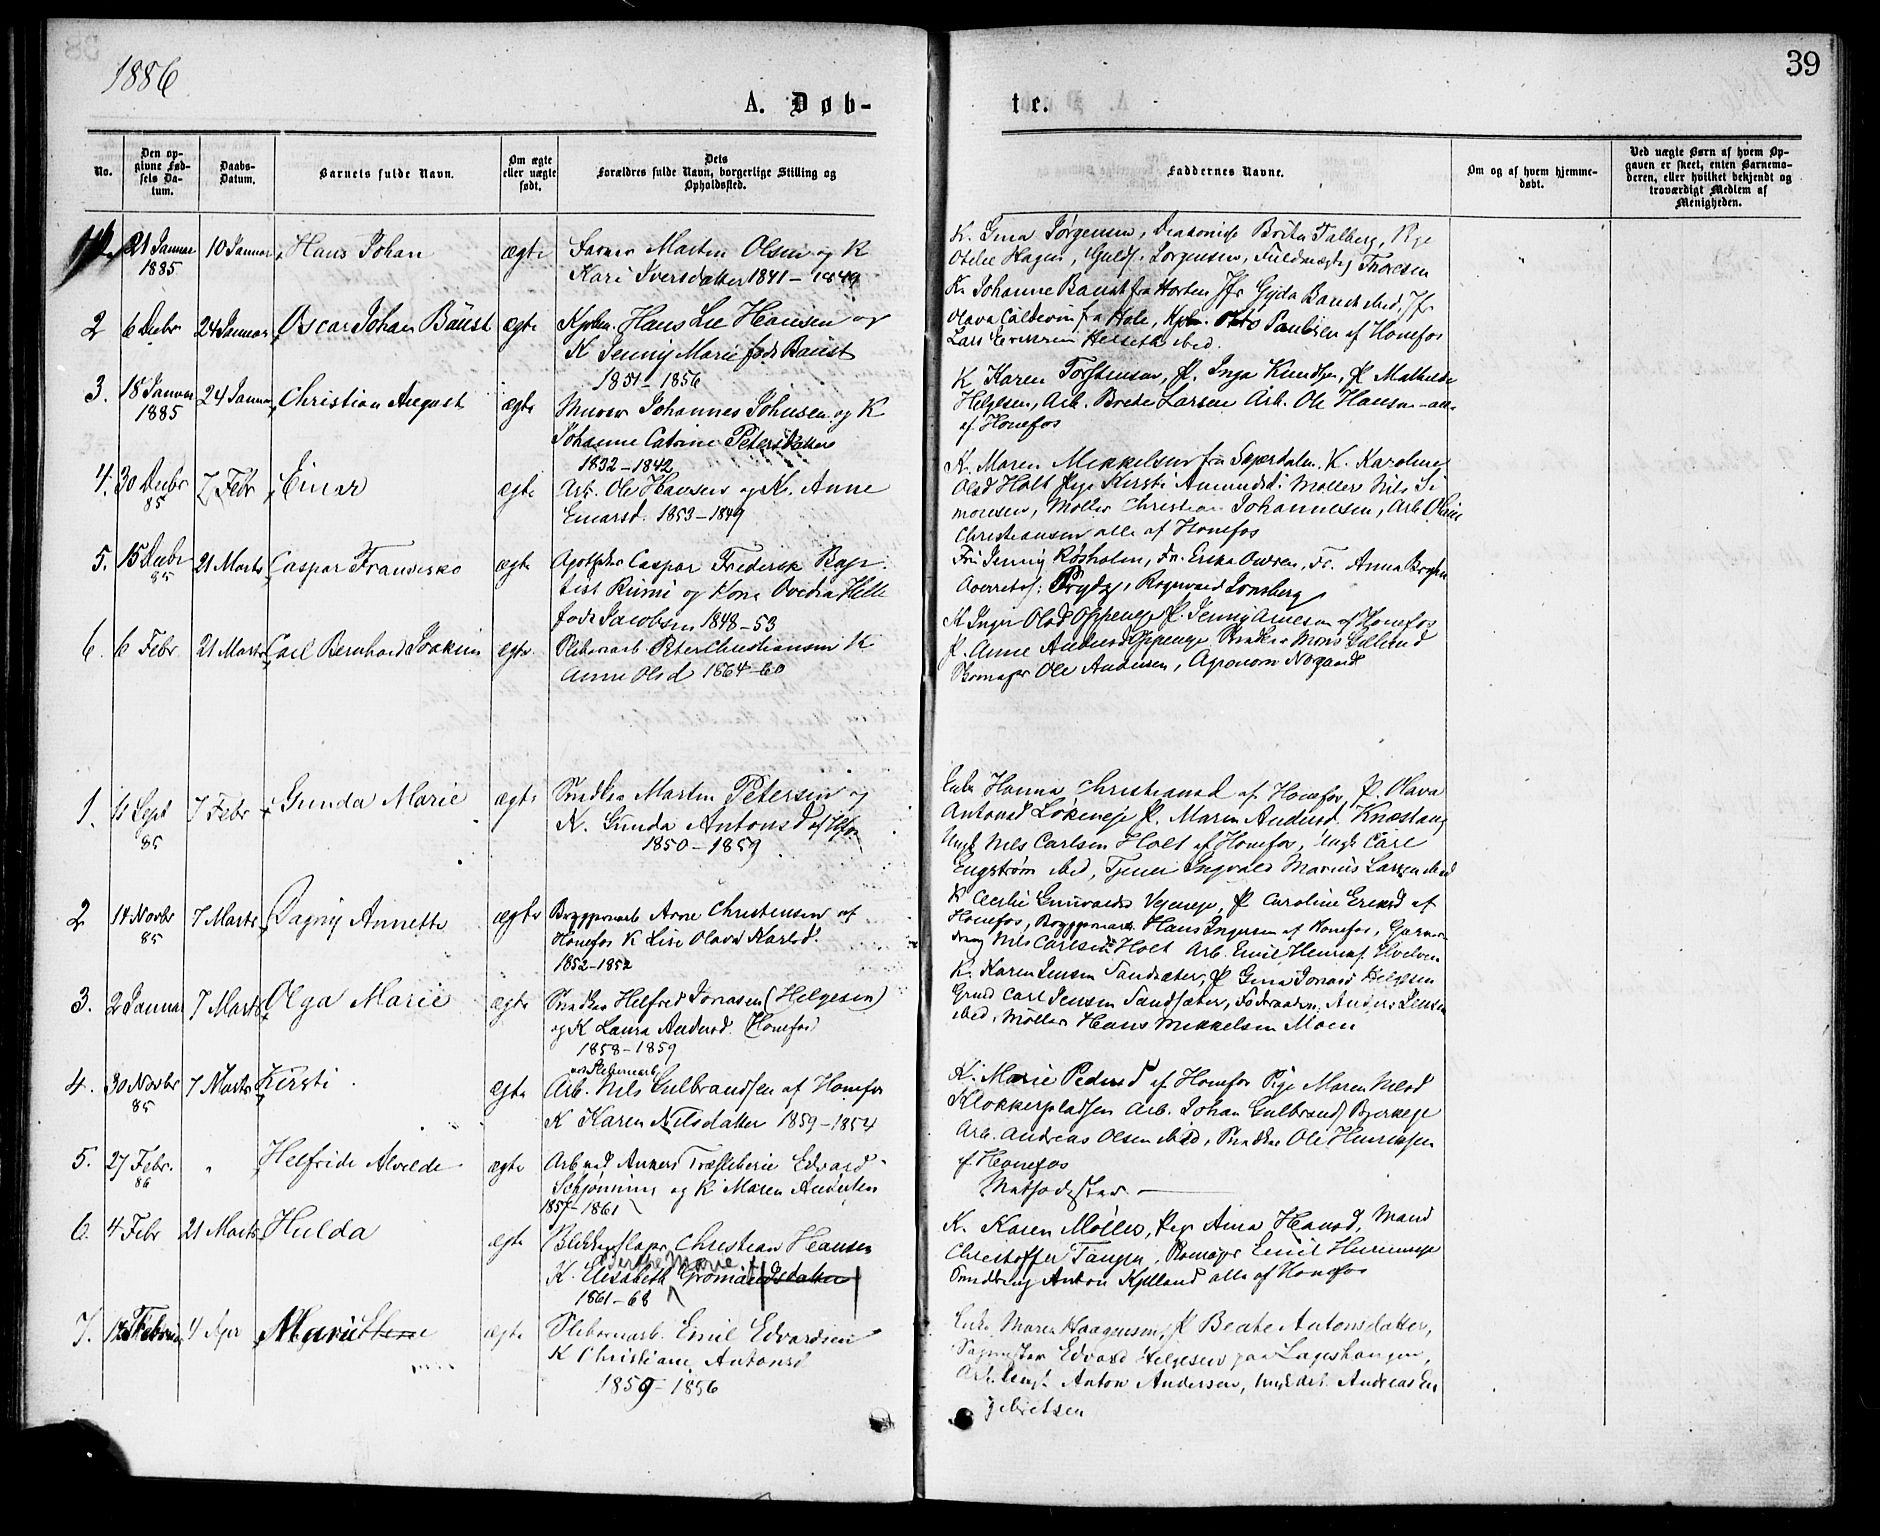 1886
39
A. Døb-
te.
No.
Den op-
givne Fød-
sels Da-
tum.
Daabs-
Datum.
Barnets fulde Navn.
Om ægte
eller uægte
født.
Dets
Forældres fulde Navn, borgerlige Stilling og
Opholdssted.
Faddernes Navne.
Om og af hvem hjemme-
døbt.
Ved uægte Børn af hvem Op-
gaven er skeet, enten Barnemo-
deren, eller hvilket bekjendt og
troværdigt Medlem af
Menigheden.
21 Januar
1885
10 Januar
Hans Johan
ægte
Martin Olsen og K
Kari Iversdatter 1841 - 1849
K. Gina Jørgensen, Diakonisse Brita Talberg, Pige
Otelie Hagen, Guldsm. Jørgensen, Fuldmægtig Thoresen
2
6 Decbr
24 Januar
Oscar Johan Baust
ægte
Kjøbm. Hans Lee Hansen og
K Jenny Marie født Baust
1851 - 1856
K. Johanne Baust fra Horten Jfr Gyda Baust ibid, Jfr
Olava fra Hole, Kjøbm. Otto Paulsen af Hønefos
Lars Helseth ibid.
3.
18 Januar
1885
24 Januar
Christian August
ægte
Murer Johannes Johnsen og K
Johanne Catrine Petersdatter
1832 - 1842
K Karen Torstensen, P. Inga Knudsen, P Mathilde
Helgesen, Arb. Brede Larsen Arb. Ole Hansen - alle
af Hønefos
4.
30 Decbr
85
7 Febr
Einar
ægte
Arb. Ole Hansen og K. Anne
Einarsd. 1853 - 1849
K. Maren Mikkelsen fra K. Karoline
Olsd Holt Pige Kirsti Amundsd. Møller Nils Si
monsen, Møller Christian Johannesen, Arb
Christiansen alle af Hønefos
5.
15 Decbr
85
21 Marts
Caspar Francisko
ægte
Caspar Frederik Bap-
tist og Kone Ovedia
født Jacobsen 1848 - 53
Fru Jenny Røsholm, Fr. Erika Fr. Anna
6.
6 Febr
21 Marts
Carl Bernhard Joakim
ægte.
Sliberiarb Peter Christiansen K
Anne Olsd 1864 - 60
K Inger Olsd Oppenege P. Jenny Arnesen af Hønefos
P. Anne Andersd Oppenege Snedker Mons
Skomager Ole Andersen, Agronom
1.
11 Sept
85
7 Febr
Gunda Marie
ægte
Snedker Martin Petersen og
K. Gunda Antonsd af Hfos
1850 - 1859
Enke Hanna Christiansd af Hønefos, P. Olava
Antonsd Løkeneje P. Maren Andersd. Knestang
Ungk Nils Carlsen Holt af Hønefos, Ungk Carl
Engstrøm ibid, Tjener Ingvald Marius Larsen ibid
2
14 Novbr
85
7 Marts
Dagny Annette
ægte
Bryggeriarb Arne Christensen af
Hønefos K Lise Olava Karlsd.
1852 - 1852
K Cecilie Gunvardsd Vejeneje, P Caroline Eriksd af
Hønefos, Bryggeriarb Hans Ingersen af Hønefos,
Nils Carlsen Holt Arb. Emil Henriks. Hvelven
3.
2 Januar
7 Marts
Olga Marie
ægte
Snedker Helfred Jonasen (Helgesen)
og K Laura Andersd. (Hønefos)
1858 - 1859
K. Karen Jensen Sandsæter, P Gina Jonasd Helgesen
Carl Jensen Sandsæter, Anders Jensen
ibid, Møller Hans Mikkelsen Moen
4.
30 Novbr
85
7 Marts
Kirsti
ægte
ved Sliberiarb
Arb. Nils Gulbrandsen af Hønefos
K Karen Nilsdatter 1859 - 1854
K. Marie Pedersd af Hønefos Pige Maren Nilsd
Klokkerpladsen Arb. Johan Gulbrands Bjerkeje
Arb. Andreas Olsen ibid, Snedker Ole Henriksen
af Hønefos
5.
27 Febr.
86
"
Helfride Alvilde
ægte
Arb ved Ankers Træsliberi Edvard
Schjønning og K Maren Andersen
1857 - 1861
Methodister
6.
4 Febr
21 Marts
Hulda
ægte
Blikkenslager Christian Hansen
Berthe Marie
K. Elisabeth Gromandsdatter
1861 - 68
K. Karen Møller, Pige Anna Hansd, Mand
Christoffer Tangen, Skomager Emil
Smedsvend Anton Kjelland alle af Hønefos
7.
Februar
4 Apr
Marie
ægte
Sliberiarb. Emil Edvardsen
K Christiane Antonsd
1859 - 1856
Enke Maren Haagensen, P Beate Antonsdatter,
Sagmester Edvard Helgesen paa
Arb. Ungk. Anton Andersen, Ungk. Andreas En
gebretsen